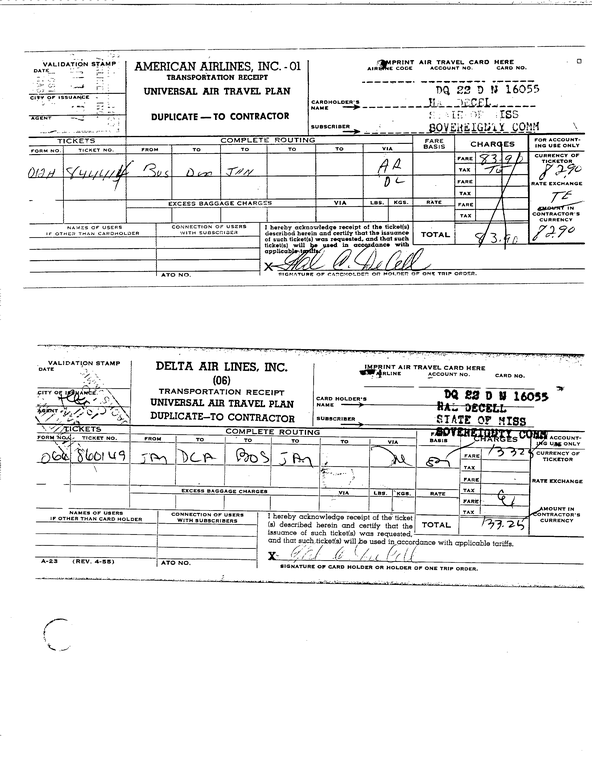 VALIDATION STAMP
DATE
CITY OF ISSUANCE
AGENT
AMERICAN AIRLINES, INC. - 01
TRANSPORTATION RECEIPT
UNIVERSAL AIR TRAVEL PLAN
DUPLICATE — TO CONTRACTOR
IMPRINT AIR TRAVEL CARD HERE
AIRLINE CODE ACCOUNT NO. CARD NO.
DQ 22 D N 16055
CARDHOLDER'S NAME
HAL DECELL
STATE OF MISS
SUBSCRIBER
SOVEREIGNTY COMM
TICKETS
COMPLETE ROUTING
FARE BASIS
CHARGES
FOR ACCOUNTING USE ONLY
FORM NO. TICKET NO. FROM TO TO TO TO VIA
FARE 83.90
CURRENCY OF TICKETOR
82.90
TAX
AA
DL
RATE EXCHANGE
TE
EXCESS BAGGAGE CHARGES VIA LBS. KGS. RATE
FARE
TAX
FARE
TAX
AMOUNT IN CONTRACTOR'S CURRENCY
82.90
NAMES OF USERS
IF OTHER THAN CARDHOLDER
CONNECTION OF USERS
WITH SUBSCRIBER
I hereby acknowledge receipt of the ticket(s)
described herein and certify that the issuance
of such ticket(s) was requested, and that such
ticket(s) will be used in accordance with
applicable tariffs.
TOTAL 83.90
X Hal C. DeCell
SIGNATURE OF CARDHOLDER OR HOLDER OF ONE TRIP ORDER.
ATO NO.
VALIDATION STAMP
DATE
CITY OF ISSUANCE
AGENT
DELTA AIR LINES, INC.
(06)
TRANSPORTATION RECEIPT
UNIVERSAL AIR TRAVEL PLAN
DUPLICATE—TO CONTRACTOR
IMPRINT AIR TRAVEL CARD HERE
AIRLINE ACCOUNT NO. CARD NO.
DQ 22 D N 16055
CARD HOLDER'S NAME
HAL DECELL
STATE OF MISS
SUBSCRIBER
SOVEREIGNTY COMM
TICKETS
COMPLETE ROUTING
BASIS
CHARGES
ACCOUNTING USE ONLY
FORM NO. TICKET NO. FROM TO TO TO TO VIA
066 860149 JAN DCA BOS JAN
FARE 133.25
CURRENCY OF TICKETOR
TAX
RATE EXCHANGE
FARE
TAX
EXCESS BAGGAGE CHARGES VIA LBS. KGS. RATE
FARE
TAX
AMOUNT IN CONTRACTOR'S CURRENCY
NAMES OF USERS
IF OTHER THAN CARD HOLDER
CONNECTION OF USERS
WITH SUBSCRIBERS
I hereby acknowledge receipt of the ticket
(s) described herein and certify that the
issuance of such ticket(s) was requested,
and that such ticket(s) will be used in accordance with applicable tariffs.
TOTAL 133.25
X
SIGNATURE OF CARD HOLDER OR HOLDER OF ONE TRIP ORDER.
A-23 (REV. 4-55) ATO NO.